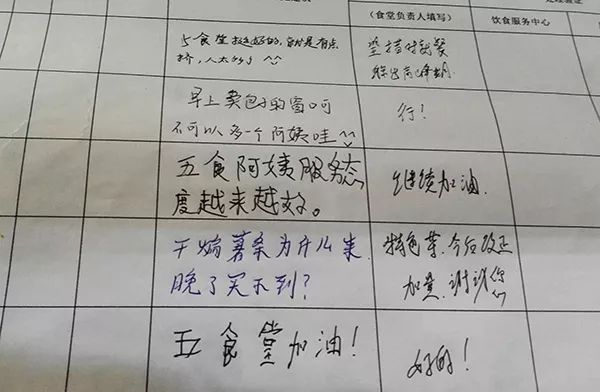 (食堂负责人填写)
饮食服务中心
五食堂挺好的,就是有点
挤,人太多了^^
坚持时刻餐
早上卖包子的窗口可
不可以多一个阿姨哇^^
行!
五食阿姨服务态
度越来越好。
继续加油.
干煸薯条为什么来
晚了买不到?
特色菜.今后改正
加量.谢谢你们
五食堂加油!
好的!